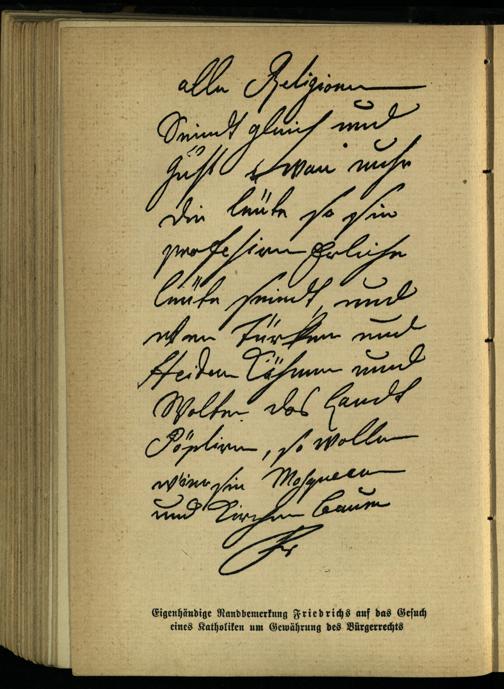 alle Religionen
Seindt gleich und
guht wan nuhr
die leüte so sie
profesiren Erliche
leüte seindt, und
wen Türken und
Heiden Kähmen und
Wolten das Landt
Pöpliren, so wollen
wier sie Mosqueen
und Kirchen bauen
Fr
Eigenhändige Randbemerkung Friedrichs auf das Gesuch
eines Katholiken um Gewährung des Bürgerrechts